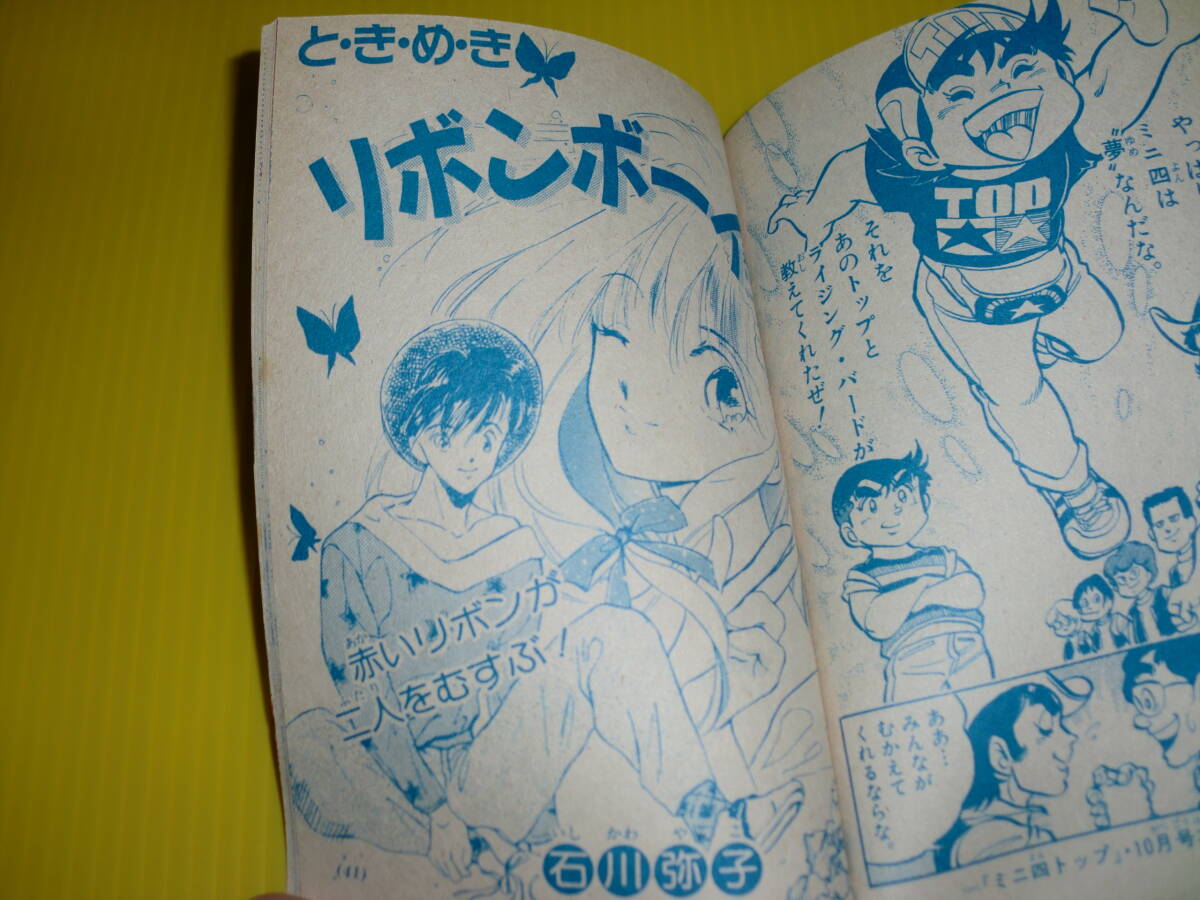 と・き・め・き
リボンボー
赤いリボンが
あか
二人をむすぶ！
ふたり
いし かわ や こ
石川弥子
(41)
TOD
TOD
やっぱ
ミニ四は
よん
“夢”なんだな。
ゆめ
それを
あのトップと
ライジング・バードが
教えてくれたぜ！
おし
ああ…
みんなが
むかえて
くれるならな。
『ミニ四トップ』・10月号